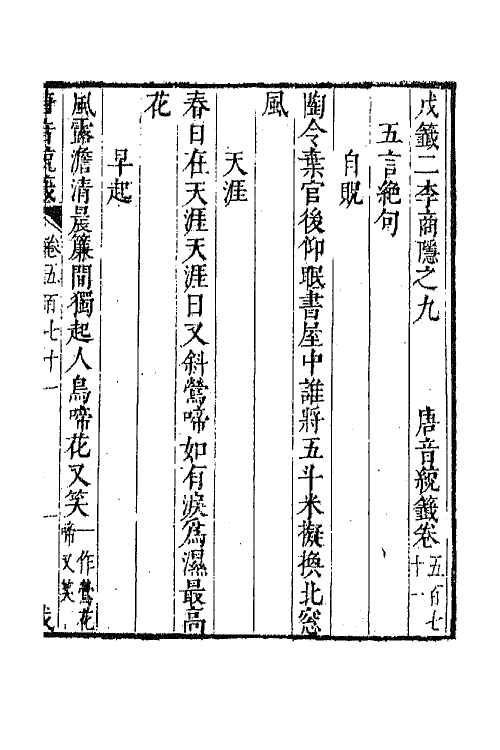 戊籤二李商隱之九　唐音統籤卷五百七十一
五言絶句
自貺
陶令棄官後仰眠書屋中誰將五斗米擬換北窓
風
天涯
春日在天涯天涯日又斜鶯啼如有淚爲濕最高
花
早起
風露澹清晨簾間獨起人鳥啼花又笑一作鶯花啼又笑
唐音統籤 卷五百七十一 一 戊